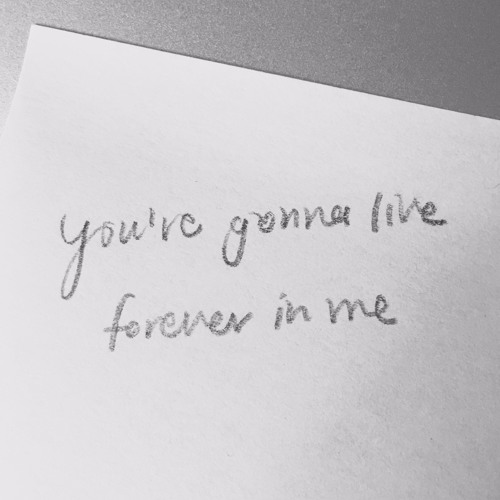 you're gonna live
forever in me